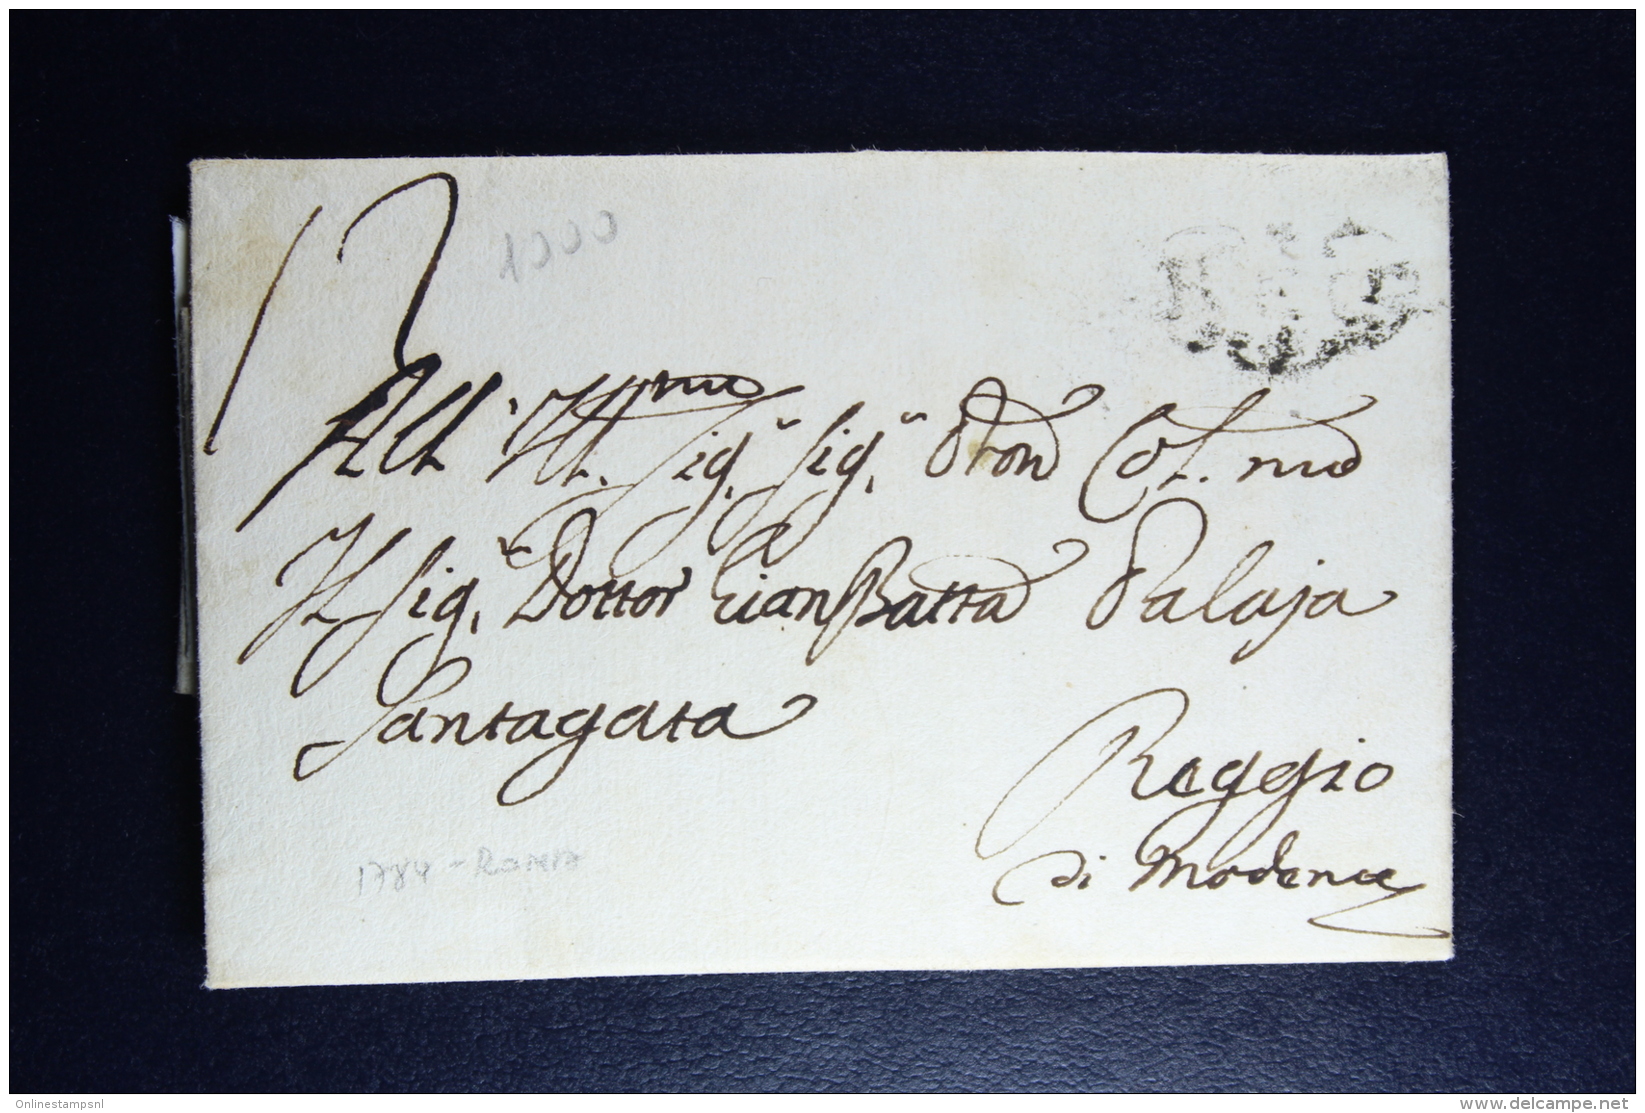 1000
All' Ill.mo Sig.r Sig.r Pron Col.mo
Il Sig.r Dottor Gian Batta Palaja
Santagata
Reggio
di Modena
1784 - Roma
Onlinestampsnl
www.delcampe.net